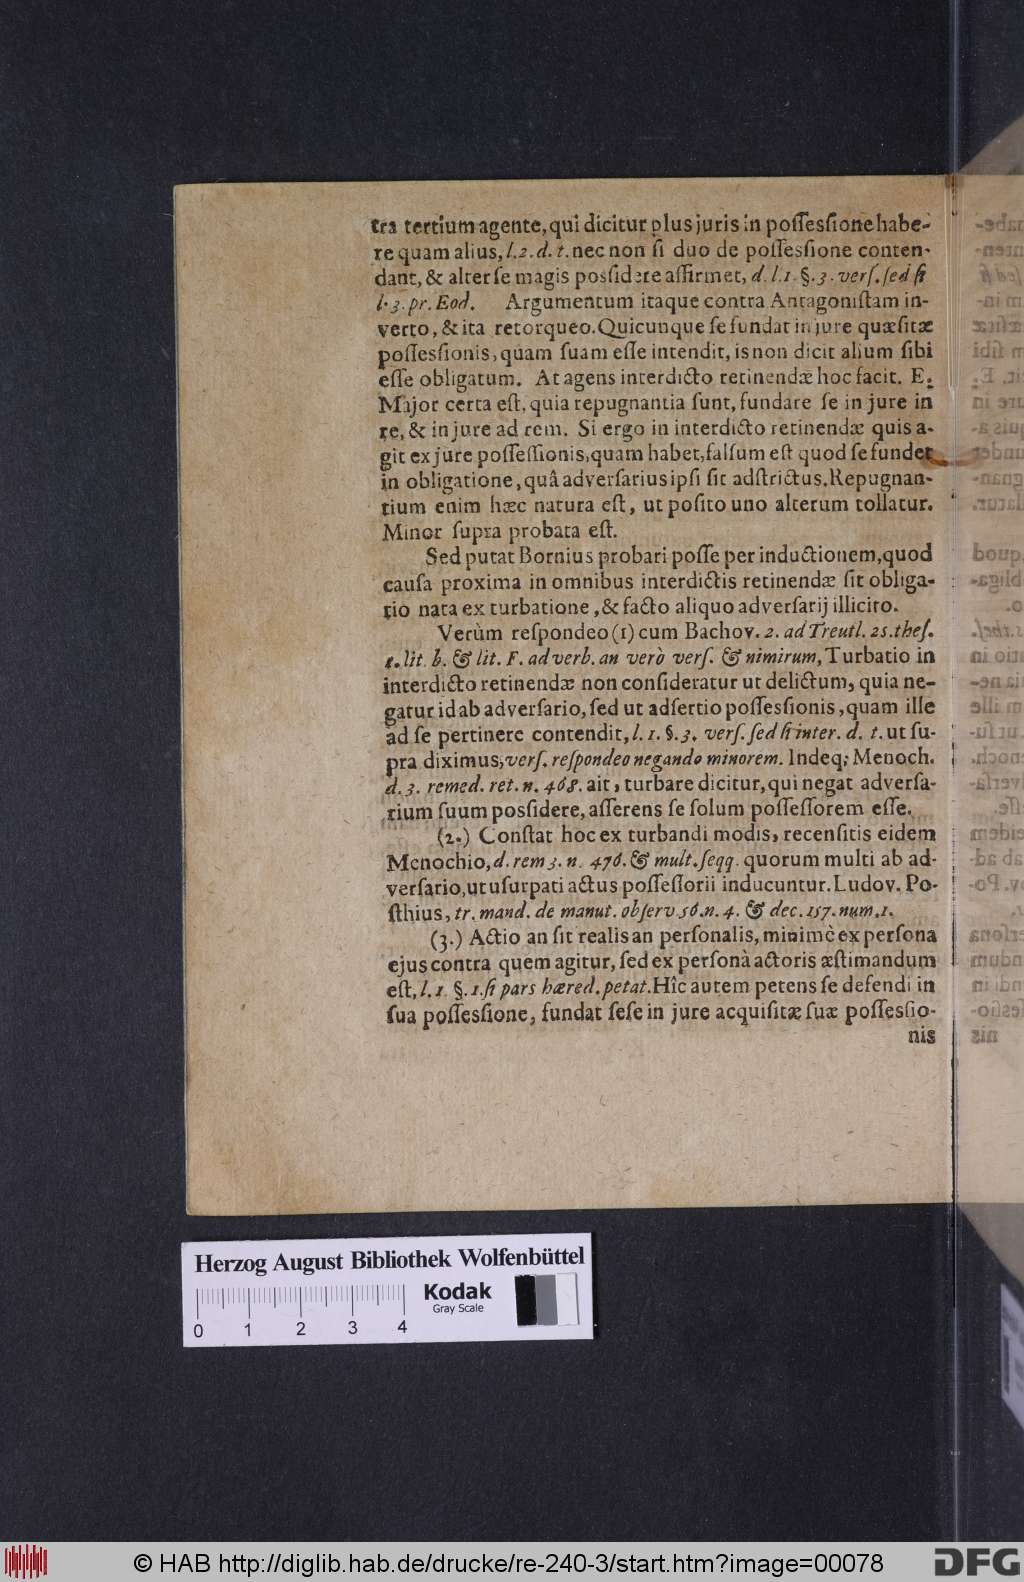 tra tertium agente, qui dicitur plus juris in poſſesſione habe-
re quam alius, l. 2. d. t. nec non ſi duo de poſſesſione conten-
dant, & alter ſe magis posſidere affirmet, d. l. 1. §. 3. verſ. ſed ſi
l. 3. pr. Eod. Argumentum itaque contra Antagoniſtam in-
verto, & ita retorqueo. Quicunque ſe fundat in jure quæſitæ
poſſesſionis, quam ſuam eſſe intendit, is non dicit alium ſibi
eſſe obligatum. At agens interdicto retinendæ hoc facit. E.
Major certa eſt, quia repugnantia ſunt, fundare ſe in jure in
re, & in jure ad rem. Si ergo in interdicto retinendæ quis a-
git ex jure poſſeſſionis, quam habet, falſum eſt quod ſe fundet
in obligatione, quâ adverſarius ipſi ſit adſtrictus. Repugnan-
tium enim hæc natura eſt, ut poſito uno alterum tollatur.
Minor ſupra probata eſt.
Sed putat Bornius probari poſſe per inductionem, quod
cauſa proxima in omnibus interdictis retinendæ ſit obliga-
tio nata ex turbatione, & facto aliquo adverſarij illicito.
Verùm reſpondeo (1) cum Bachov. 2. ad Treutl. 25. theſ.
1. lit. b. & lit. F. ad verb. an verò verſ. & nimirum, Turbatio in
interdicto retinendæ non conſideratur ut delictum, quia ne-
gatur id ab adverſario, ſed ut adſertio poſſesſionis, quam ille
ad ſe pertinere contendit, l. 1. §. 3. verſ. ſed ſi inter. d. t. ut ſu-
pra diximus, verſ. reſpondeo negando minorem. Indeq; Menoch.
d. 3. remed. ret. n. 468. ait, turbare dicitur, qui negat adverſa-
rium ſuum posſidere, aſſerens ſe ſolum poſſeſſorem eſſe.
(2.) Conſtat hoc ex turbandi modis, recenſitis eidem
Menochio, d. rem 3. n. 476. & mult. ſeqq. quorum multi ab ad-
verſario, ut uſurpati actus poſſeſſorii inducuntur. Ludov. Po-
ſthius, tr. mand. de manut. obſerv. 56. n. 4. & dec. 157. num. 1.
(3.) Actio an ſit realis an perſonalis, minimè ex perſona
ejus contra quem agitur, ſed ex perſonà actoris æſtimandum
eſt, l. 1. §. 1. ſi pars hæred. petat. Hîc autem petens ſe defendi in
ſua poſſesſione, fundat ſeſe in jure acquiſitæ ſuæ poſſesſio-
nis
Herzog August Bibliothek Wolfenbüttel
Kodak
Gray Scale
0 1 2 3 4
© HAB http://diglib.hab.de/drucke/re-240-3/start.htm?image=00078
DFG